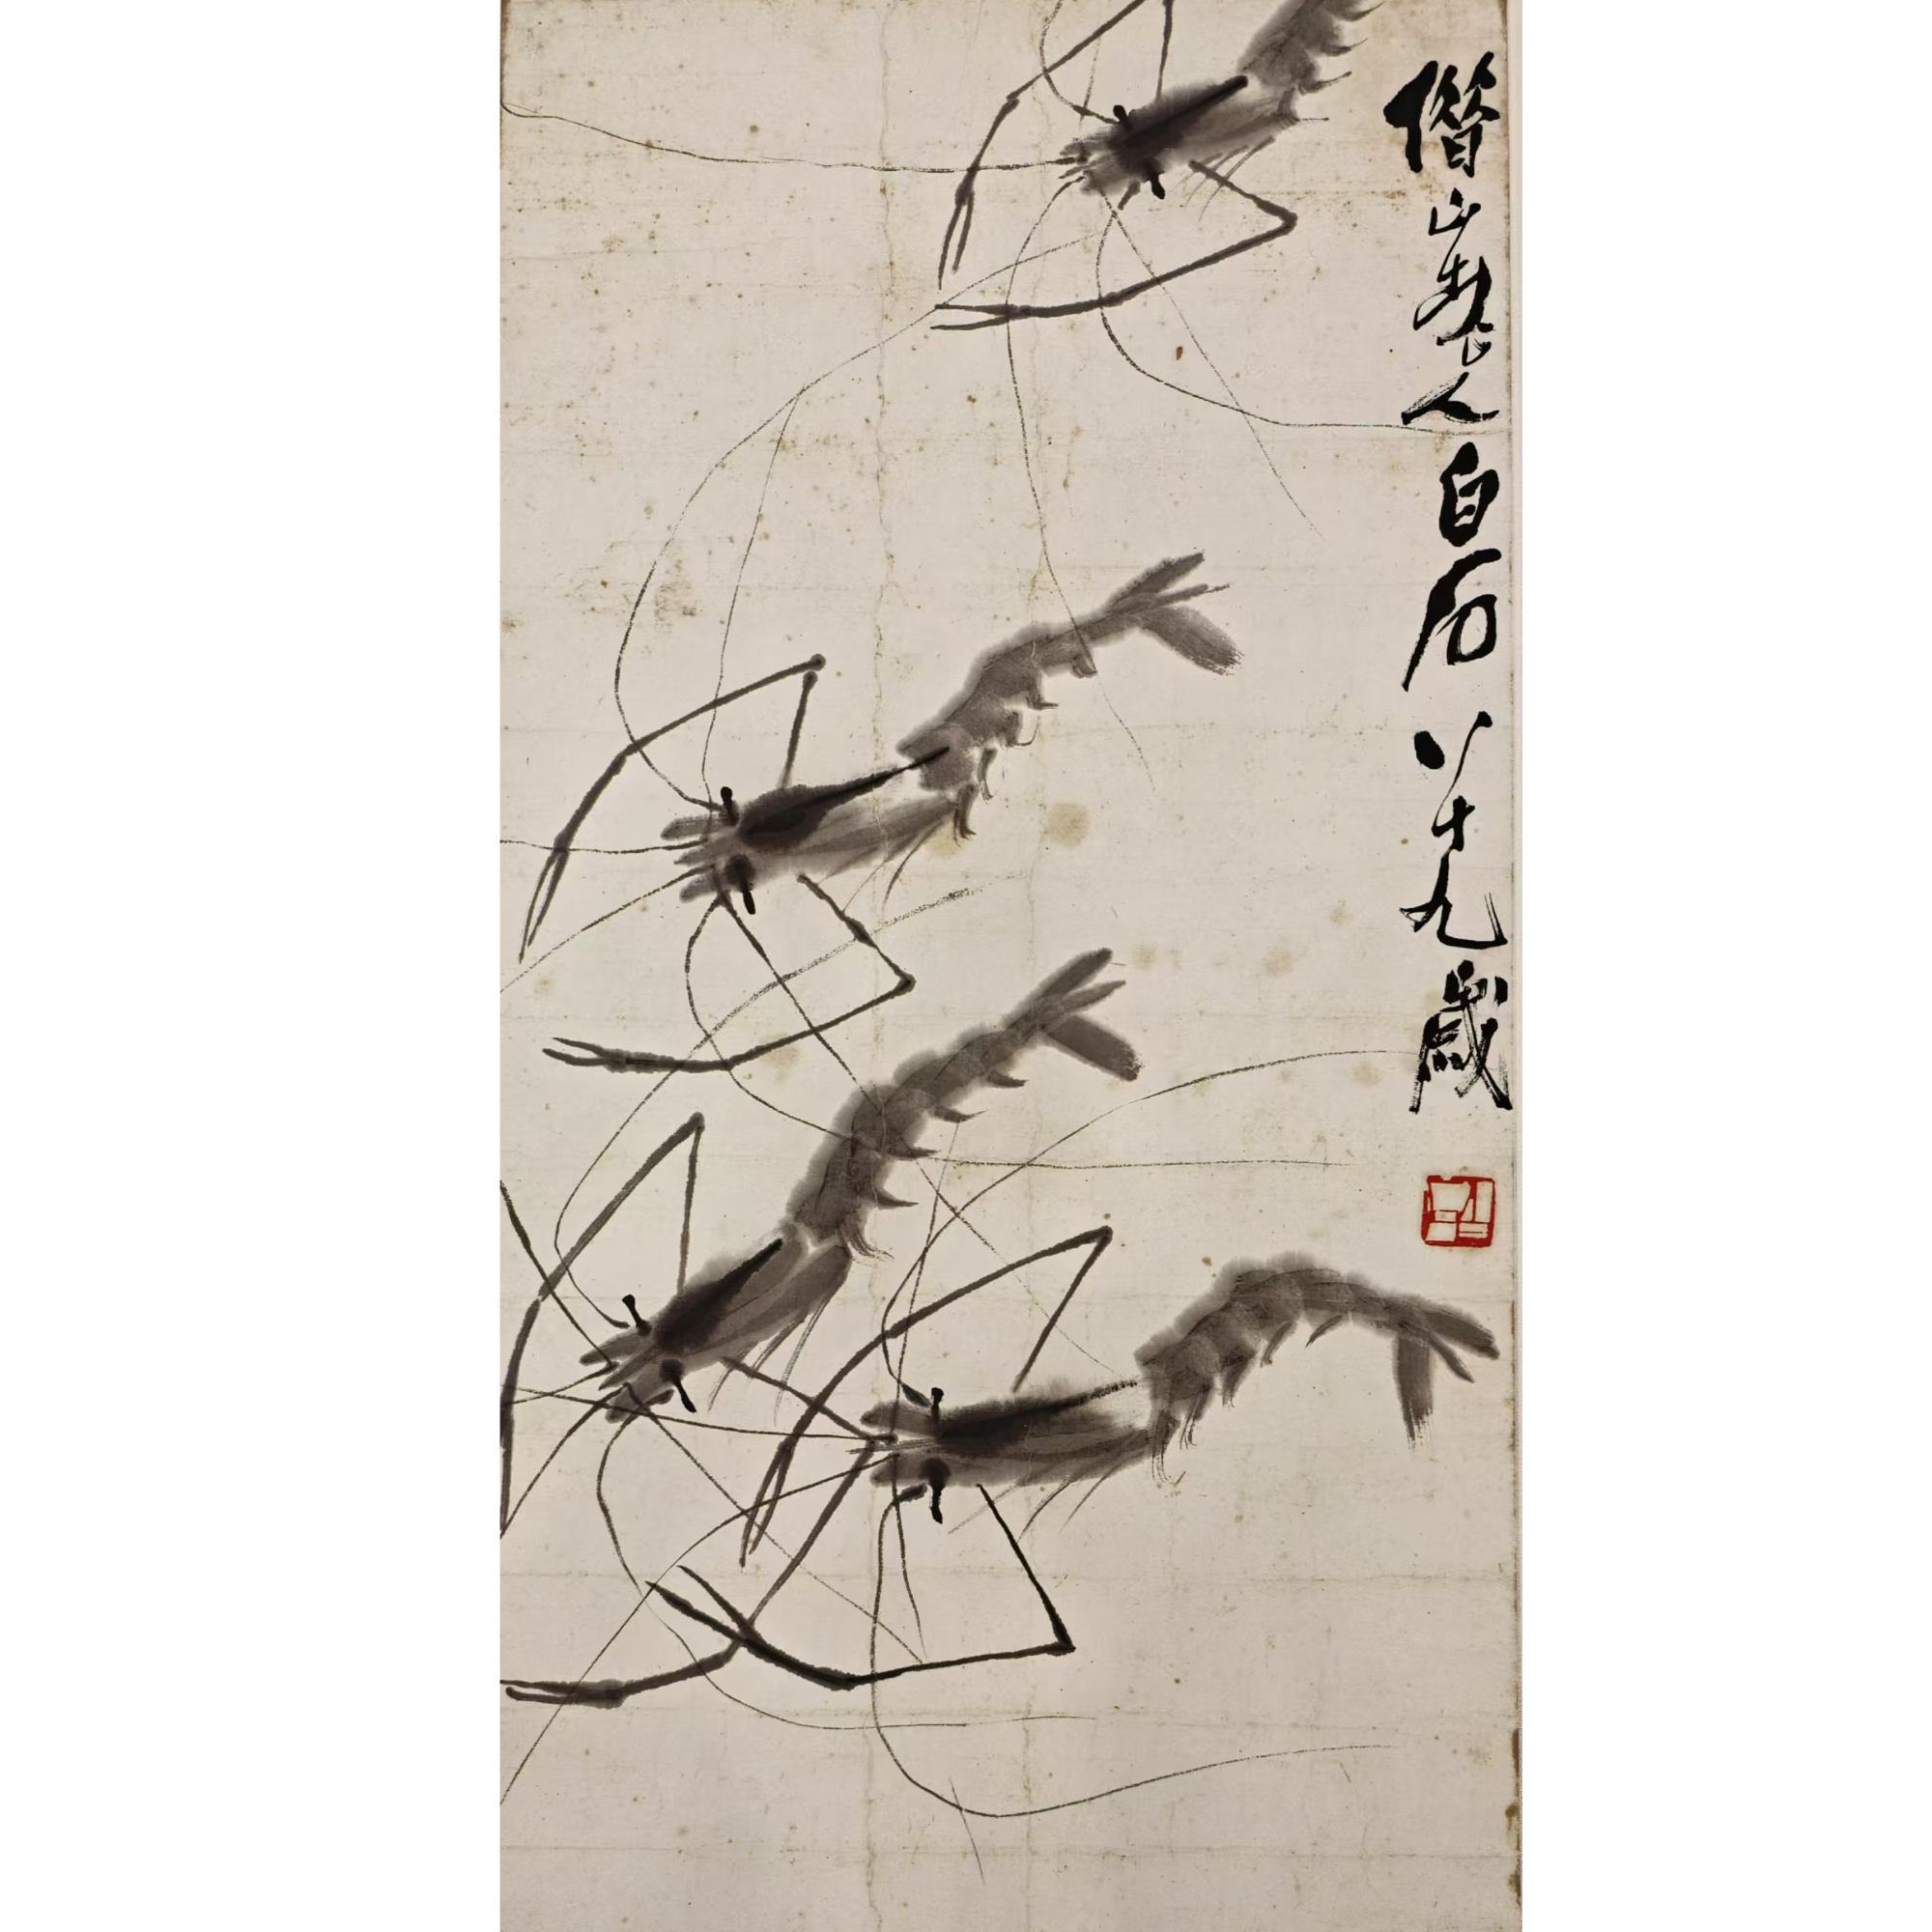 借山老人白石八十九歲